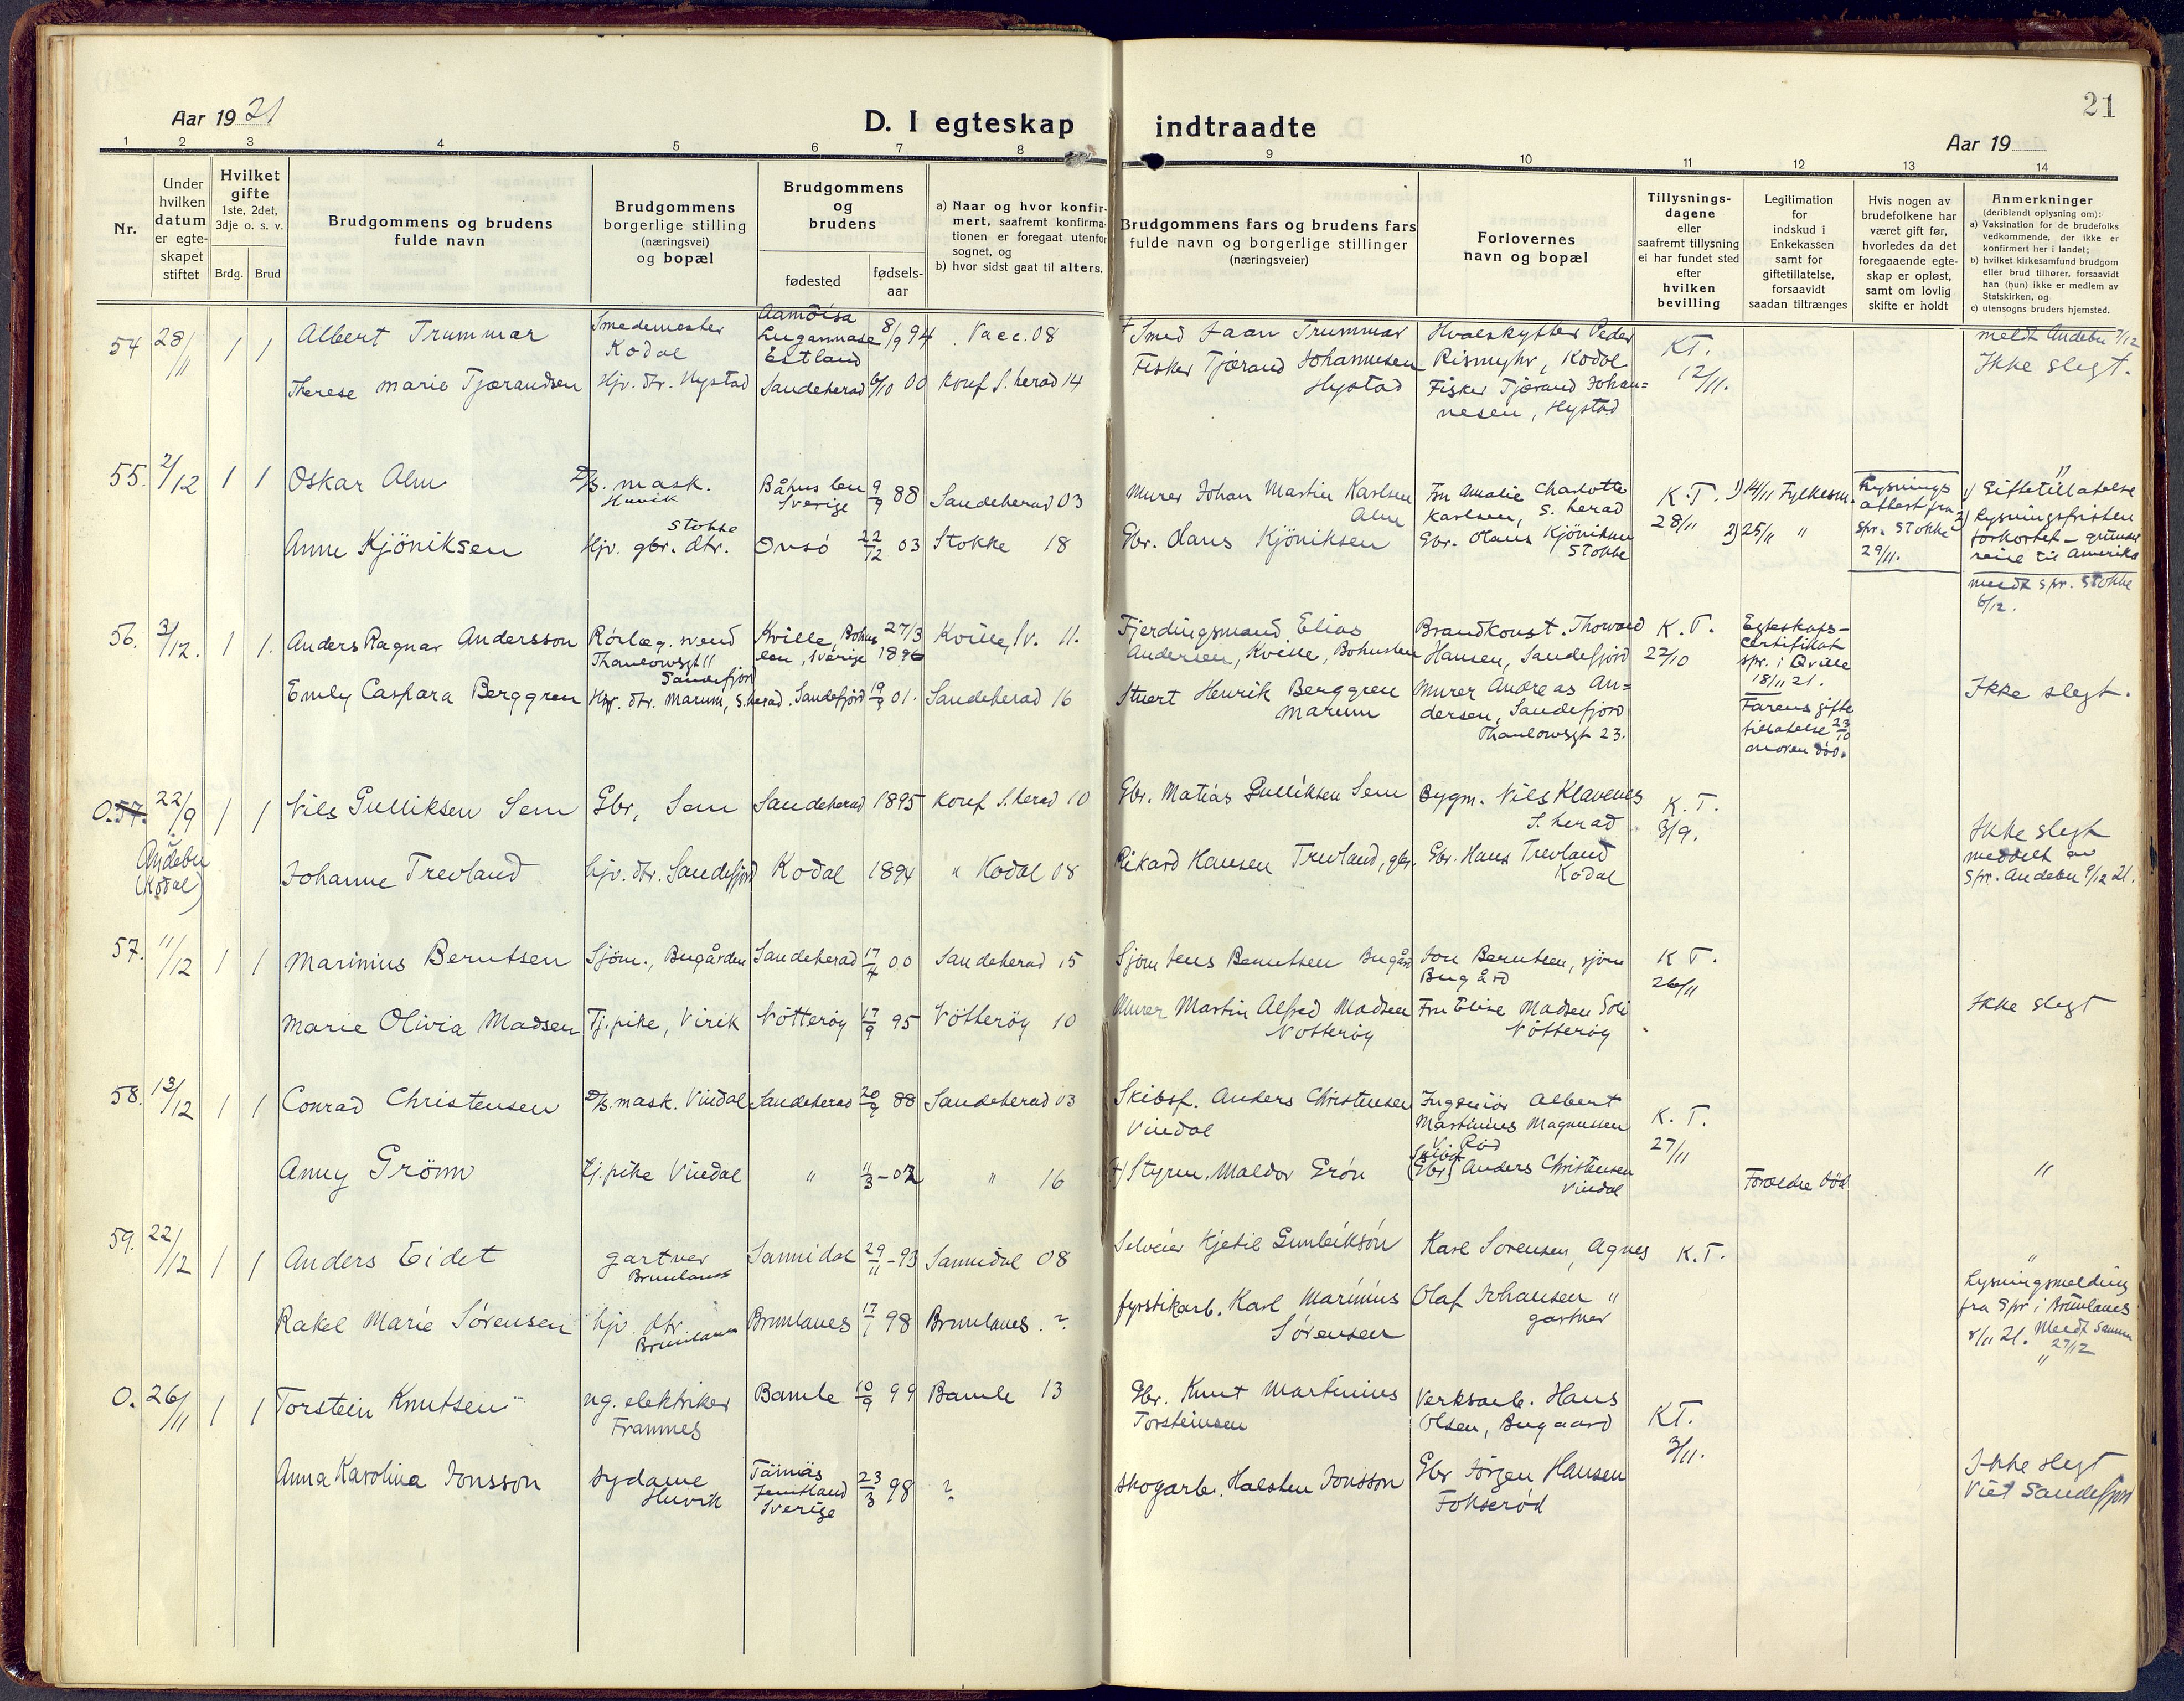 21
Aar 1921
D. I egteskap indtraadte
Aar 19
1 2 3 4 5 6 7 8 9 10 11 12 13 14
Nr.
Under hvilken datum er egte-skapet stiftet
Hvilket gifte 1ste, 2det, 3dje o. s. v.
Brdg. Brud
Brudgommens og brudens fulde navn
Brudgommens borgerlige stilling (næringsvei) og bopæl
Brudgommens og brudens
fødested
fødsels-aar
a) Naar og hvor konfir-mert, saafremt konfirma-tionen er foregaat utenfor sognet, og
b) hvor sidst gaat til alters.
Brudgommens fars og brudens fars fulde navn og borgerlige stillinger (næringsveier)
Forlovernes navn og bopæl
Tillysnings-dagene eller saafremt tillysning ei har fundet sted efter hvilken bevilling
Legitimation for indskud i Enkekassen samt for giftetillatelse, forsaavidt saadan tiltrænges
Hvis nogen av brudefolkene har været gift før, hvorledes da det foregaaende egte-skap er opløst, samt om lovlig skifte er holdt
Anmerkninger (deriblandt oplysning om):
a) Vaksination for de brudefolks vedkommende, der ikke er konfirmert her i landet;
b) hvilket kirkesamfund brudgom eller brud tilhører, forsaavidt han (hun) ikke er medlem av Statskirken, og
c) utensogns bruders hjemsted.
54 28/11 1 1 Albert Trummar
Smedemester Kodal
Lugannuse Estland 8/9 94
Vacc. 08
† Smed Jaan Trummar
Hvalskytter Peder Rismyhr, Kodal
K T. 12/11.
meldt Andebu 7/12
Ikke slegt.
Therese Marie Tjærandsen
Hjv. dtr. Hystad
Sandeherad 6/10 00
Konf S. herad 14
Fisker Tjærand Johannesen Hystad
Fisker Tjærand Johan=nesen, Hystad
55. 2/12 1 1 Oskar Alm
D/S. mask. Huvik
Båhus len Sverige 9/9 88
Sandeherad 03
Murer Johan Martin Karlsen Alm
Fru Amalie Charlotte Karlsen, S. herad
K. T. 28/11
1) 14/11 Fylkesm.
2) 25/11 "
Lysnings attest fra spr. Stokke 29/11.
"
1) Giftetillatelse
2) Lysningsfristen forkortet - grunnet reise til Amerika
meldt spr. Stokke 6/12.
Anne Kjöniksen
Hjv. gbr. dtr. Stokke
Onsö 22/12 03
Stokke 18
Gbr. Olaus Kjöniksen
Gbr. Olaus Kjöniksen Stokke
56. 3/12. 1 1. Anders Ragnar Andersson
Rörlæg. svend Thaulowsgt 11 Sandefjord
Kville, Bohus len, Sverige 27/3 1896
Kville, Sv. 11.
Fjerdingsmand Elias Andersen, Kville, Bohuslen
Brandkonst. Thorvald Hansen, Sandefjord
K. T. 27/10
Egteskaps-certifikat spr. i Qville 18/11 21.
Farens gifte tillatelse 23/10 moren död.
Emely Caspara Berggren
Hjv. dtr. Marum, S. herad.
Sandefjord 19/9 01.
Sandeherad 16
Stuert Henrik Berggren Marum
Murer Andreas An=dersen, Sandefjord Thaulowsgt 23.
Ikke slegt.
0. 57. 22/9 1 1 Nils Gulliksen Sem
Andebu (Kodal)
Gbr, Sem
Sandeherad 1895
Konf S. herad 10
Gbr. Matias Gulliksen Sem
Bygm. Nils Klavenes S. herad
K. T. 3/9.
Ikke slegt meddelt av Spr. Andebu 9/12 21.
Johanne Trevland
hjv. dtr. Sandefjord
Kodal 1894
" Kodal 08
Rikard Hansen Trevland, gbr.
Gbr. Hans Trevland Kodal
57. 11/12 1 1 Marinius Berntsen
Sjöm., Bugården
Sandeherad 17/4 00
Sandeherad 15
Sjöm Jens Berntsen Bugård
Jon Berntsen, sjöm Bugård
K T. 26/11
Marie Olivia Madsen
Tj. pike, Virik
Nötteröy 17/9 95
Nötteröy 10
Murer Martin Alfred Madsen Nötteröy
Fru Elise Madsen Nötteröy
Ikke slegt
58. 13/12 1 1 Conrad Christensen
D/S. mask. Vindal
Sandeherad 20/9 88
Sandeherad 03
Skibsf. Anders Christensen Vindal
Ingeniör Albert Martinius Magnussen V. Röd
K. T. 27/11
Anny Grönn
tj. pike Vindal
" 11/3 - 02
" 16
†) Styrm. Maldor Grön
Skibsf (Gbr) Anders Christensen Vindal
Forældre död
"
59. 22/12 1 1 Anders Eidet
gartner Brunlanes
Sannidal 29/11 - 93
Sannidal 08
Selveier Kjetil Gunleiksön
Karl Sorensen, Agnes
K. T.
"
Rakel Marie Sørensen
hjv. dtr. Brunlanes
Brunlanes 17/1 98
Brunlanes. ?
fyrstikarb. Karl Marinius Sørensen
Olaf Johansen " gartner
Lysningsmelding fra Spr i Brunlanes 8/11 21. Meldt samme 27/12
"
0. 26/11 1 1 Torstein Knutsen
ug. elektriker Framnes
Bamle 10/9 99
Bamle 13
Gbr. Knut Martinius Torsteinsen
Verksarb. Hans Olsen, Bugaard
K T. 3/11.
Anna Karolina Jonsson
sydame Huvik
Tännäs Jemtland Sverige 23/3 98
?
Skogarb. Halsten Jonsson
Gbr Jörgen Hansen Fokseröd
Ikke slegt
Viet Sandefjord